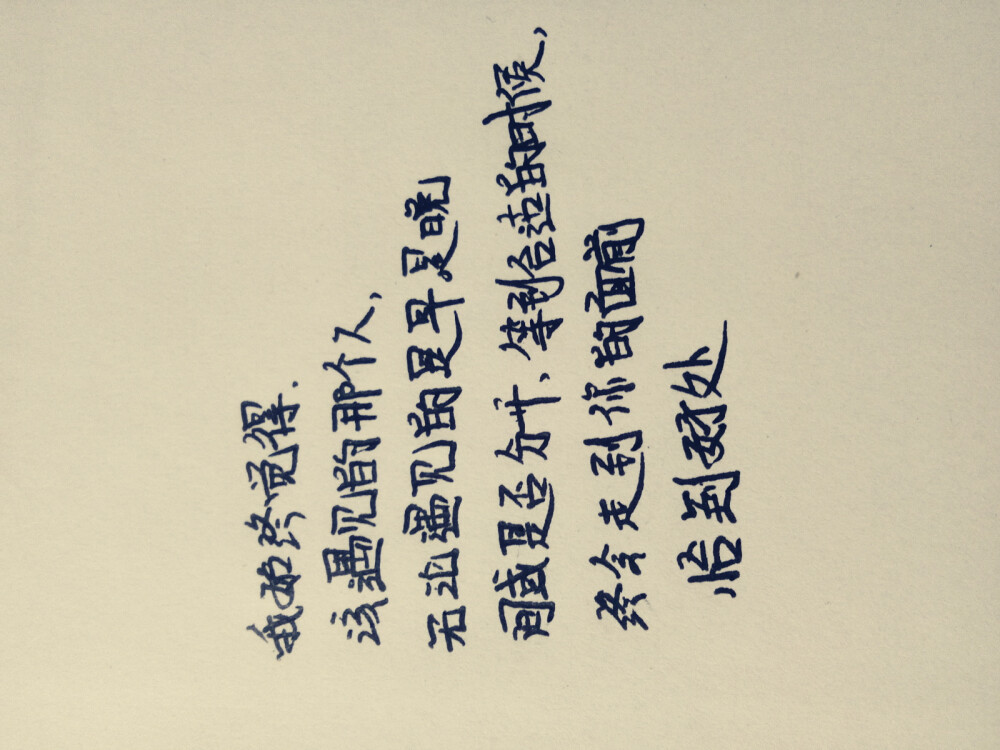 我始终觉得.
该遇见的那个人,
无论遇见的是早是晚
间或是否分开、等到合适的时候,
终会走到你的面前
恰到好处